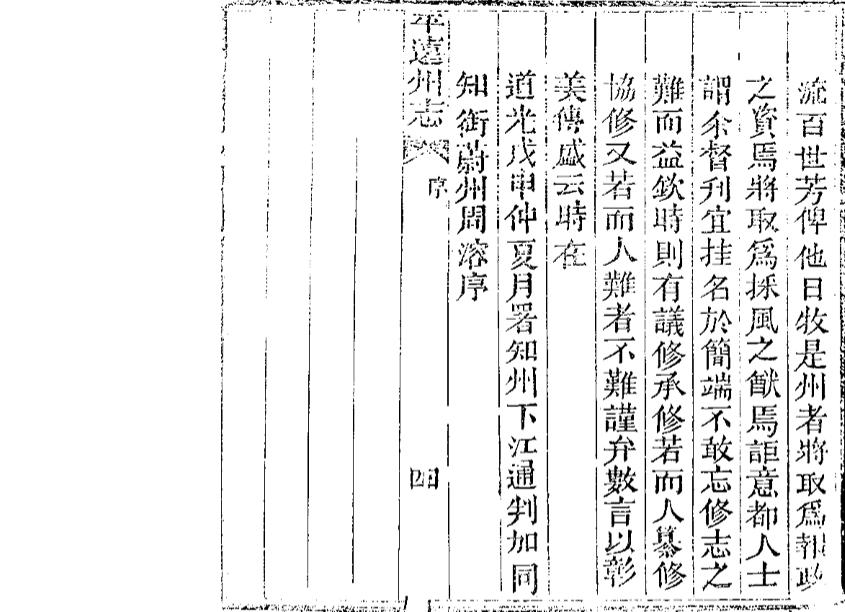 流百世芳俾他日牧是州者將取爲報政
之資焉將取爲採風之獻焉詎意都人士
謂余督刋宜挂名於簡端不敢忘修志之
難而益欽時則有議修承修若而人纂修
協修又若而人難者不難謹弁數言以彰
美傳盛云時在
道光戊申仲夏月署知州下江通判加同
知銜蔚州周溶序
平遠州志
序
四